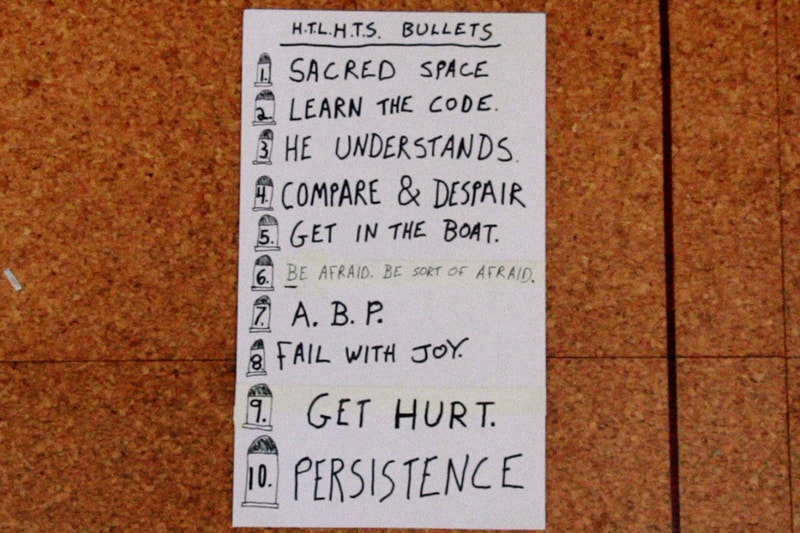 H.T.L.H.T.S. BULLETS
1. SACRED SPACE
2. LEARN THE CODE.
3 HE UNDERSTANDS.
4. COMPARE & DESPAIR
5. GET IN THE BOAT.
6. BE AFRAID. BE SORT OF AFRAID.
7. A. B. P.
8 FAIL WITH JOY.
9. GET HURT.
10. PERSISTENCE